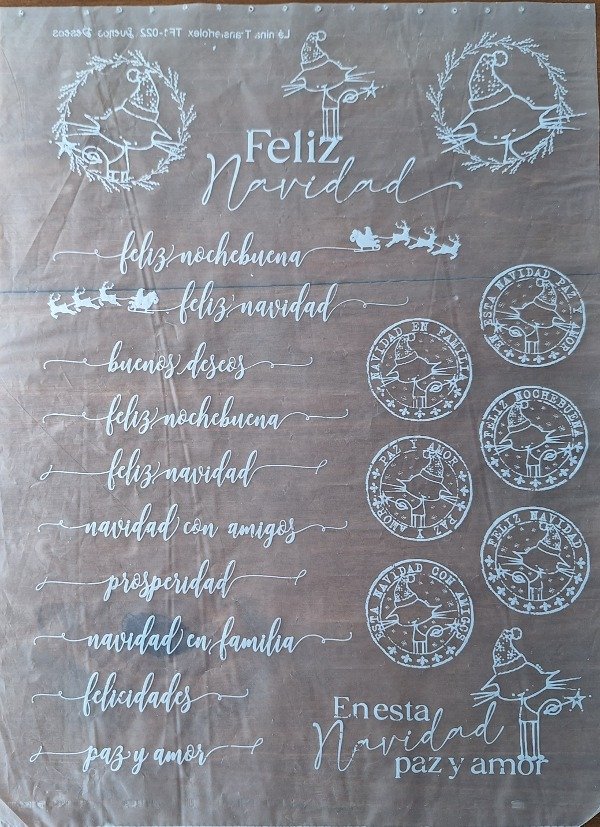 Lámina Transferiolex TF1-022 Buenos Deseos
Feliz
Navidad
feliz nochebuena
feliz navidad
buenos deseos
feliz nochebuena
feliz navidad
navidad con amigos
prosperidad
navidad en familia
felicidades
paz y amor
EN ESTA NAVIDAD PAZ Y AMOR
NAVIDAD EN FAMILIA
FELIZ NOCHEBUENA
PAZ Y AMOR
PAZ Y AMOR
FELIZ NAVIDAD
ESTA NAVIDAD CON AMIGOS
En esta
Navidad
paz y amor